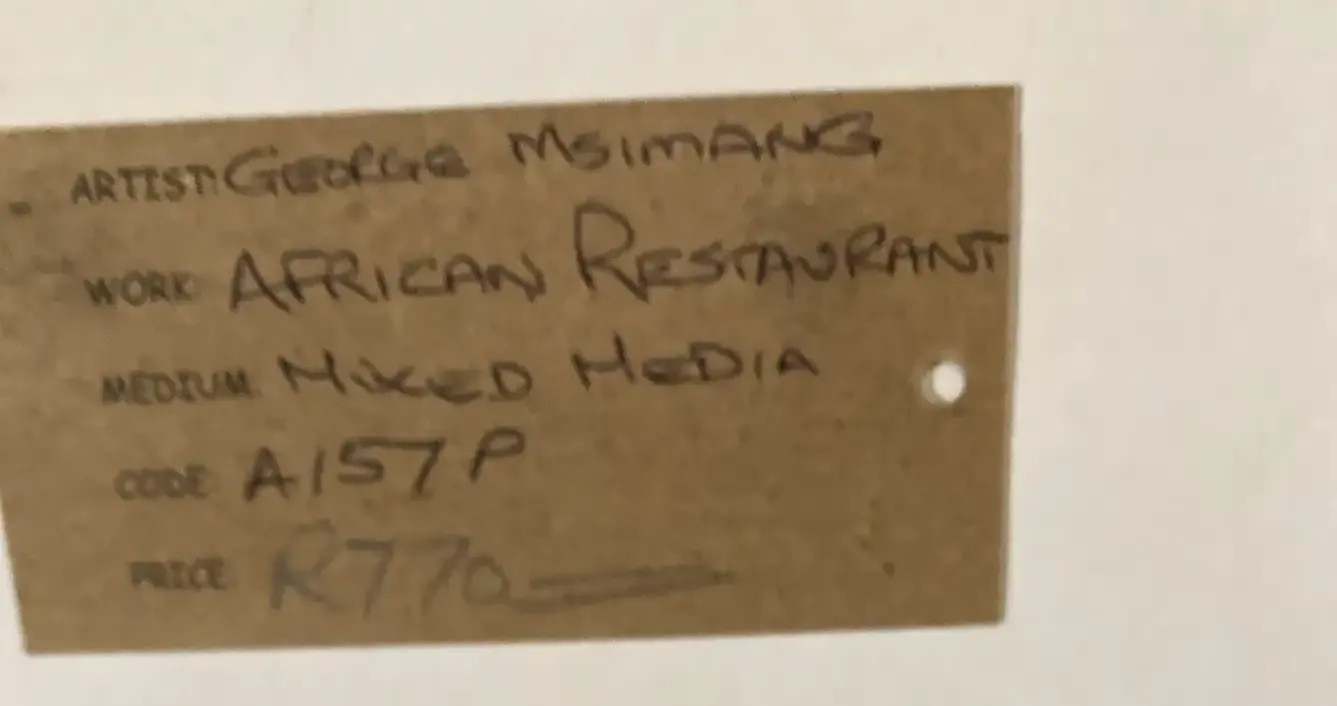 ARTIST: GEORGE MSIMANG
WORK: AFRICAN RESTAURANT
MEDIUM: MIXED MEDIA
CODE A157P
PRICE R770